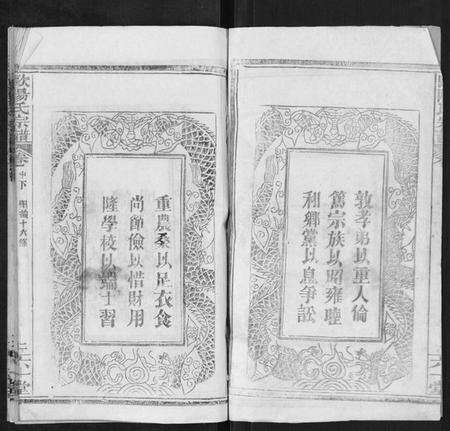 敦孝弟以重人倫
篤宗族以昭雍睦
和鄉黨以息爭訟
重農桑以足衣食
尚節儉以惜財用
隆學校以端士習
歐陽氏宗譜
卷
中
下
聖諭十六條